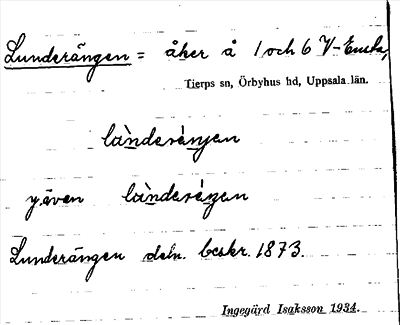 Lunderängen = åker å 1 och 6 V-Ensta,
Tierps sn, Örbyhus hd, Uppsala län.
lànderéŋen
y. även làndereŋen
Lunderängen deln. beskr. 1873.
Ingegärd Isaksson 1934.